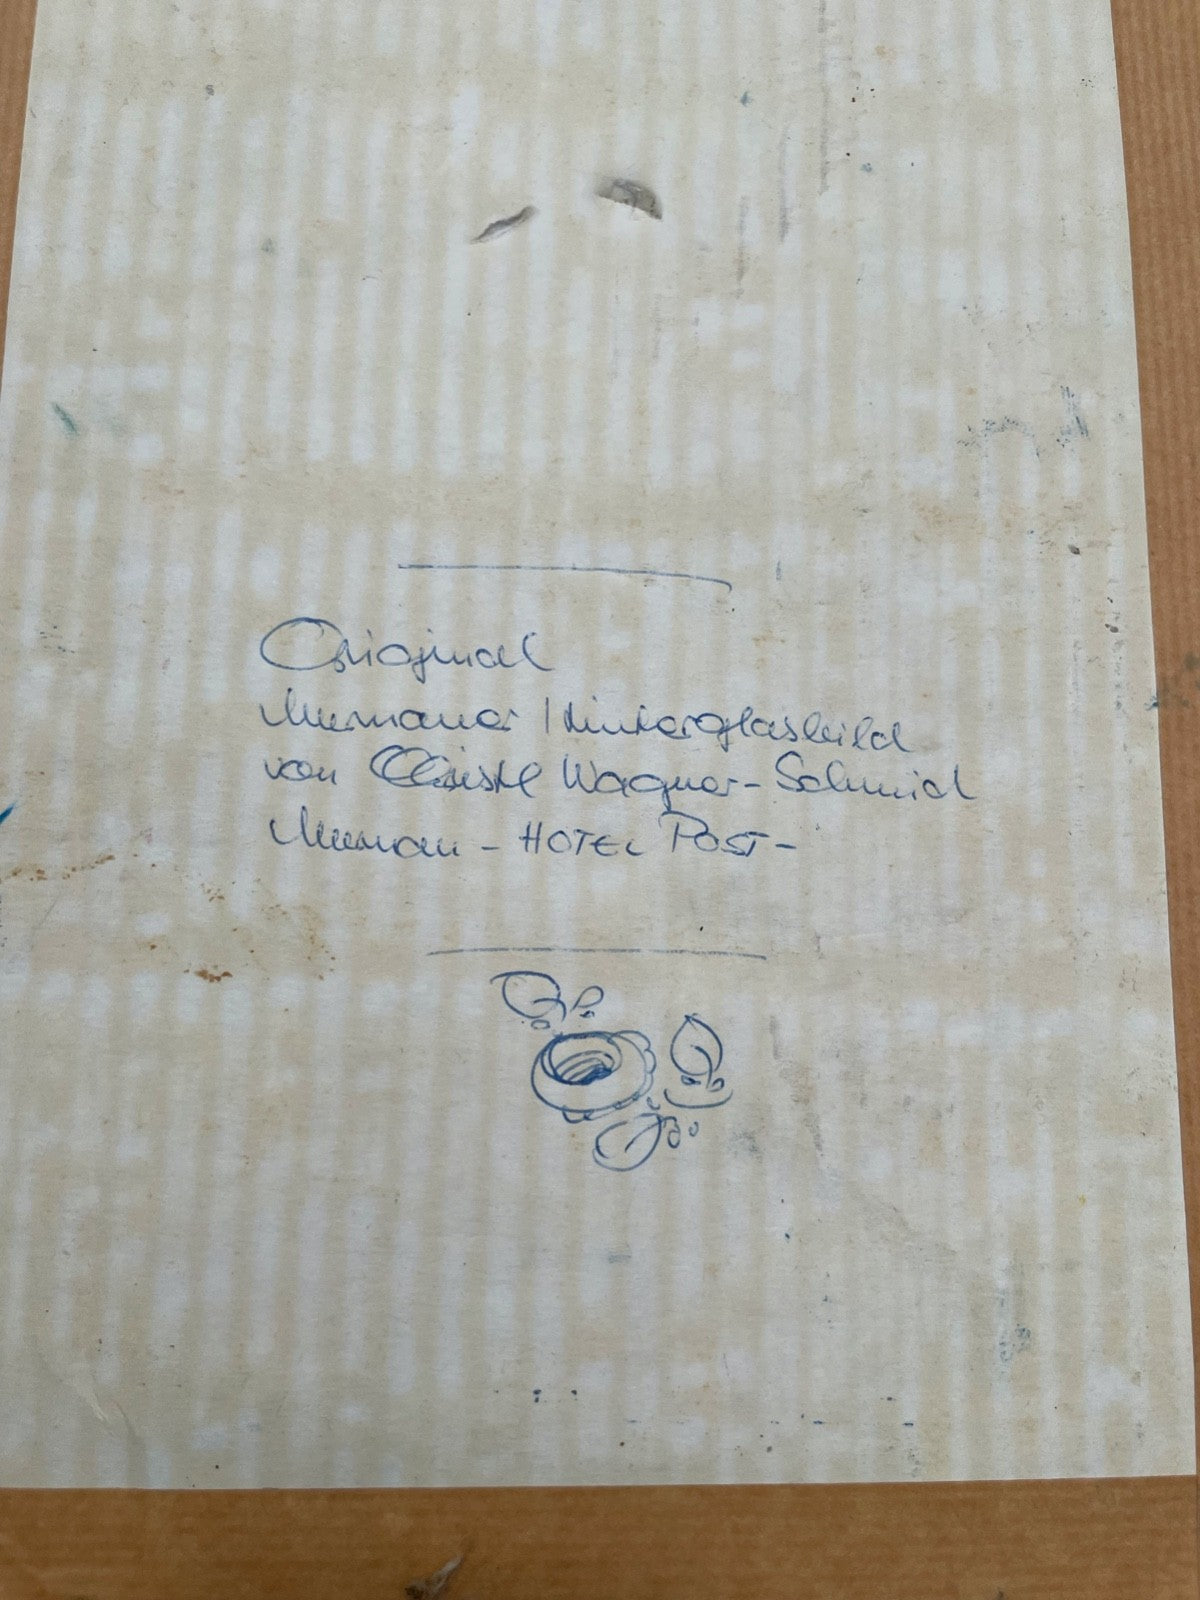 Original
Murnauer Hinterglasbild
von Christl Wagner-Schmid
Murnau - HOTEL POST -